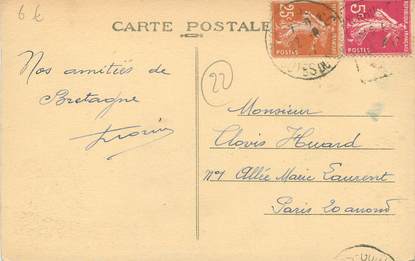 6 €
CARTE POSTALE
25c
POSTES
5c
POSTES
RÉPUBLIQUE FRANÇAISE
Nos amitiés de
Bretagne
22
Monsieur
Clovis Huard
Allée Marie Laurent
Paris 20 arrond